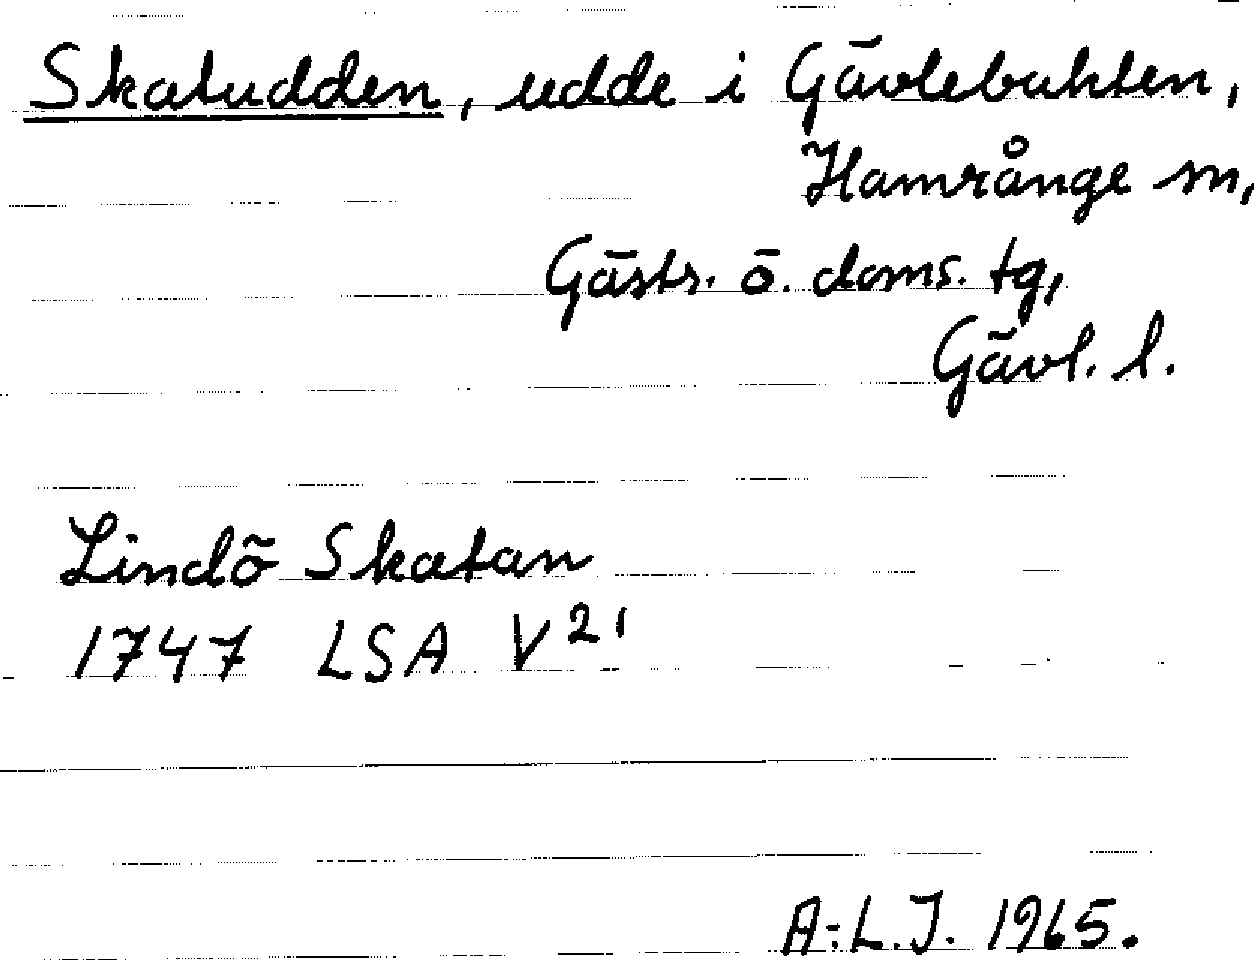 Skatudden, udde i Gävlebukten,
Hamrånge sn,
Gästr. ö. doms. tg,
Gävl. l.
Lindö Skatan
1747 LSA V 21
A:L.J. 1965.